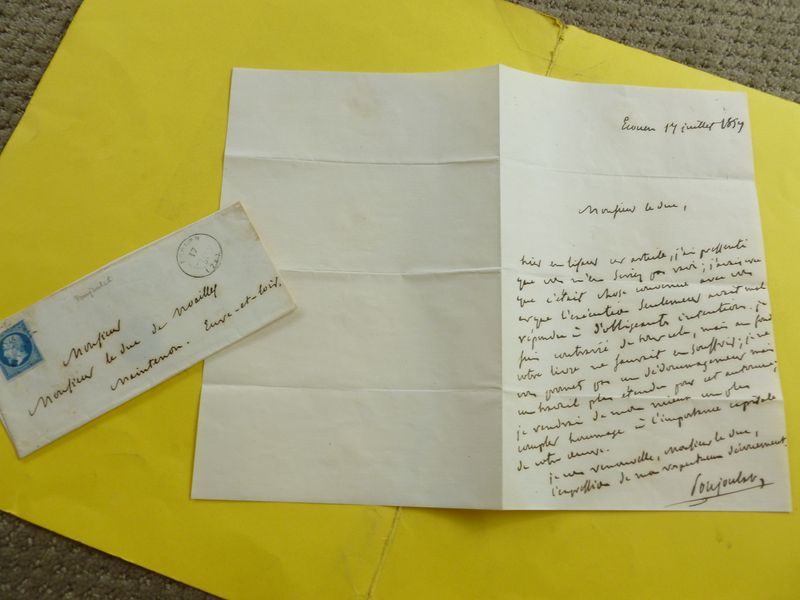 Ecouen 17 juillet 1857
Monsieur le duc,
hier en lisant cet article, j'ai pressenti
que vous n'en seriez pas ravi; j'avais cru
que c'était chose convenue avec vous
et que l'exécution seulement avait mal
répondu à d'obligeantes intentions. je
suis contrarié de tout cela, mais au fond
votre livre ne saurait en souffrir; je ne
vous promet pas un dédommagement mais
un travail plus étendu pour cet automne;
je rendrai de mon mieux un plus
complet hommage à l'importance capitale
de votre œuvre.
je vous renouvelle, Monsieur le duc,
l'expression de mon respectueux dévouement.
Poujoulat
Poujoulat
17
Monsieur
Monsieur le duc de Noailles
Maintenon. Eure-et-Loir.